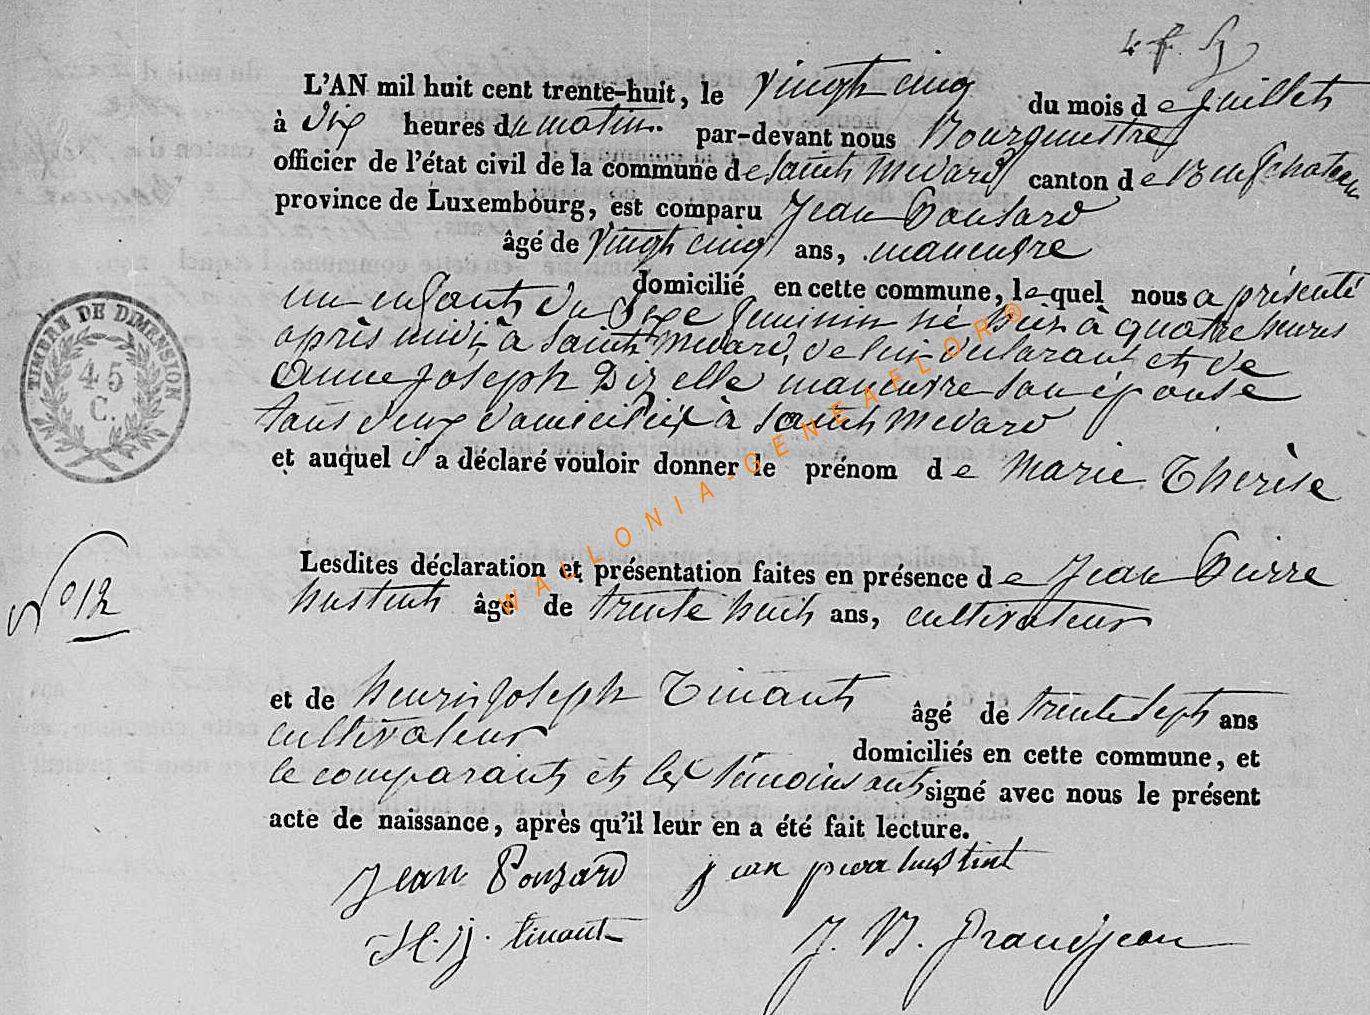 L'AN mil huit cent trente-huit, le vingt cinq du mois de juillet
à dix heures du matin par-devant nous Bourgmestre
officier de l'état civil de la commune de Saint Medard canton de Neufchateau
province de Luxembourg, est comparu Jean Ponsard
âgé de vingt cinq ans, maneuvre
domicilié en cette commune, lequel nous a présenté
un enfant du sexe feminin né hier à quatre heures
après midi à Saint Medard, de lui declarant et de
Anne Joseph Dizelle maneuvre son épouse
tous deux domiciliés à Saint Medard
et auquel il a déclaré vouloir donner le prénom de Marie Thérèse
N° 12
Lesdites déclaration et présentation faites en présence de Jean Pierre
Hustint âgé de trente huit ans, cultivateur
et de Henri Joseph Tinant âgé de trente sept ans
cultivateur
domiciliés en cette commune, et
le comparant et les témoins ont signé avec nous le présent
acte de naissance, après qu'il leur en a été fait lecture.
Jean Ponsard jean pierre hustint
H. J. tinant J. B. Grandjean
TIMBRE DE DIMENSION
45
C.
WALLONIA-GENEAFLOR®